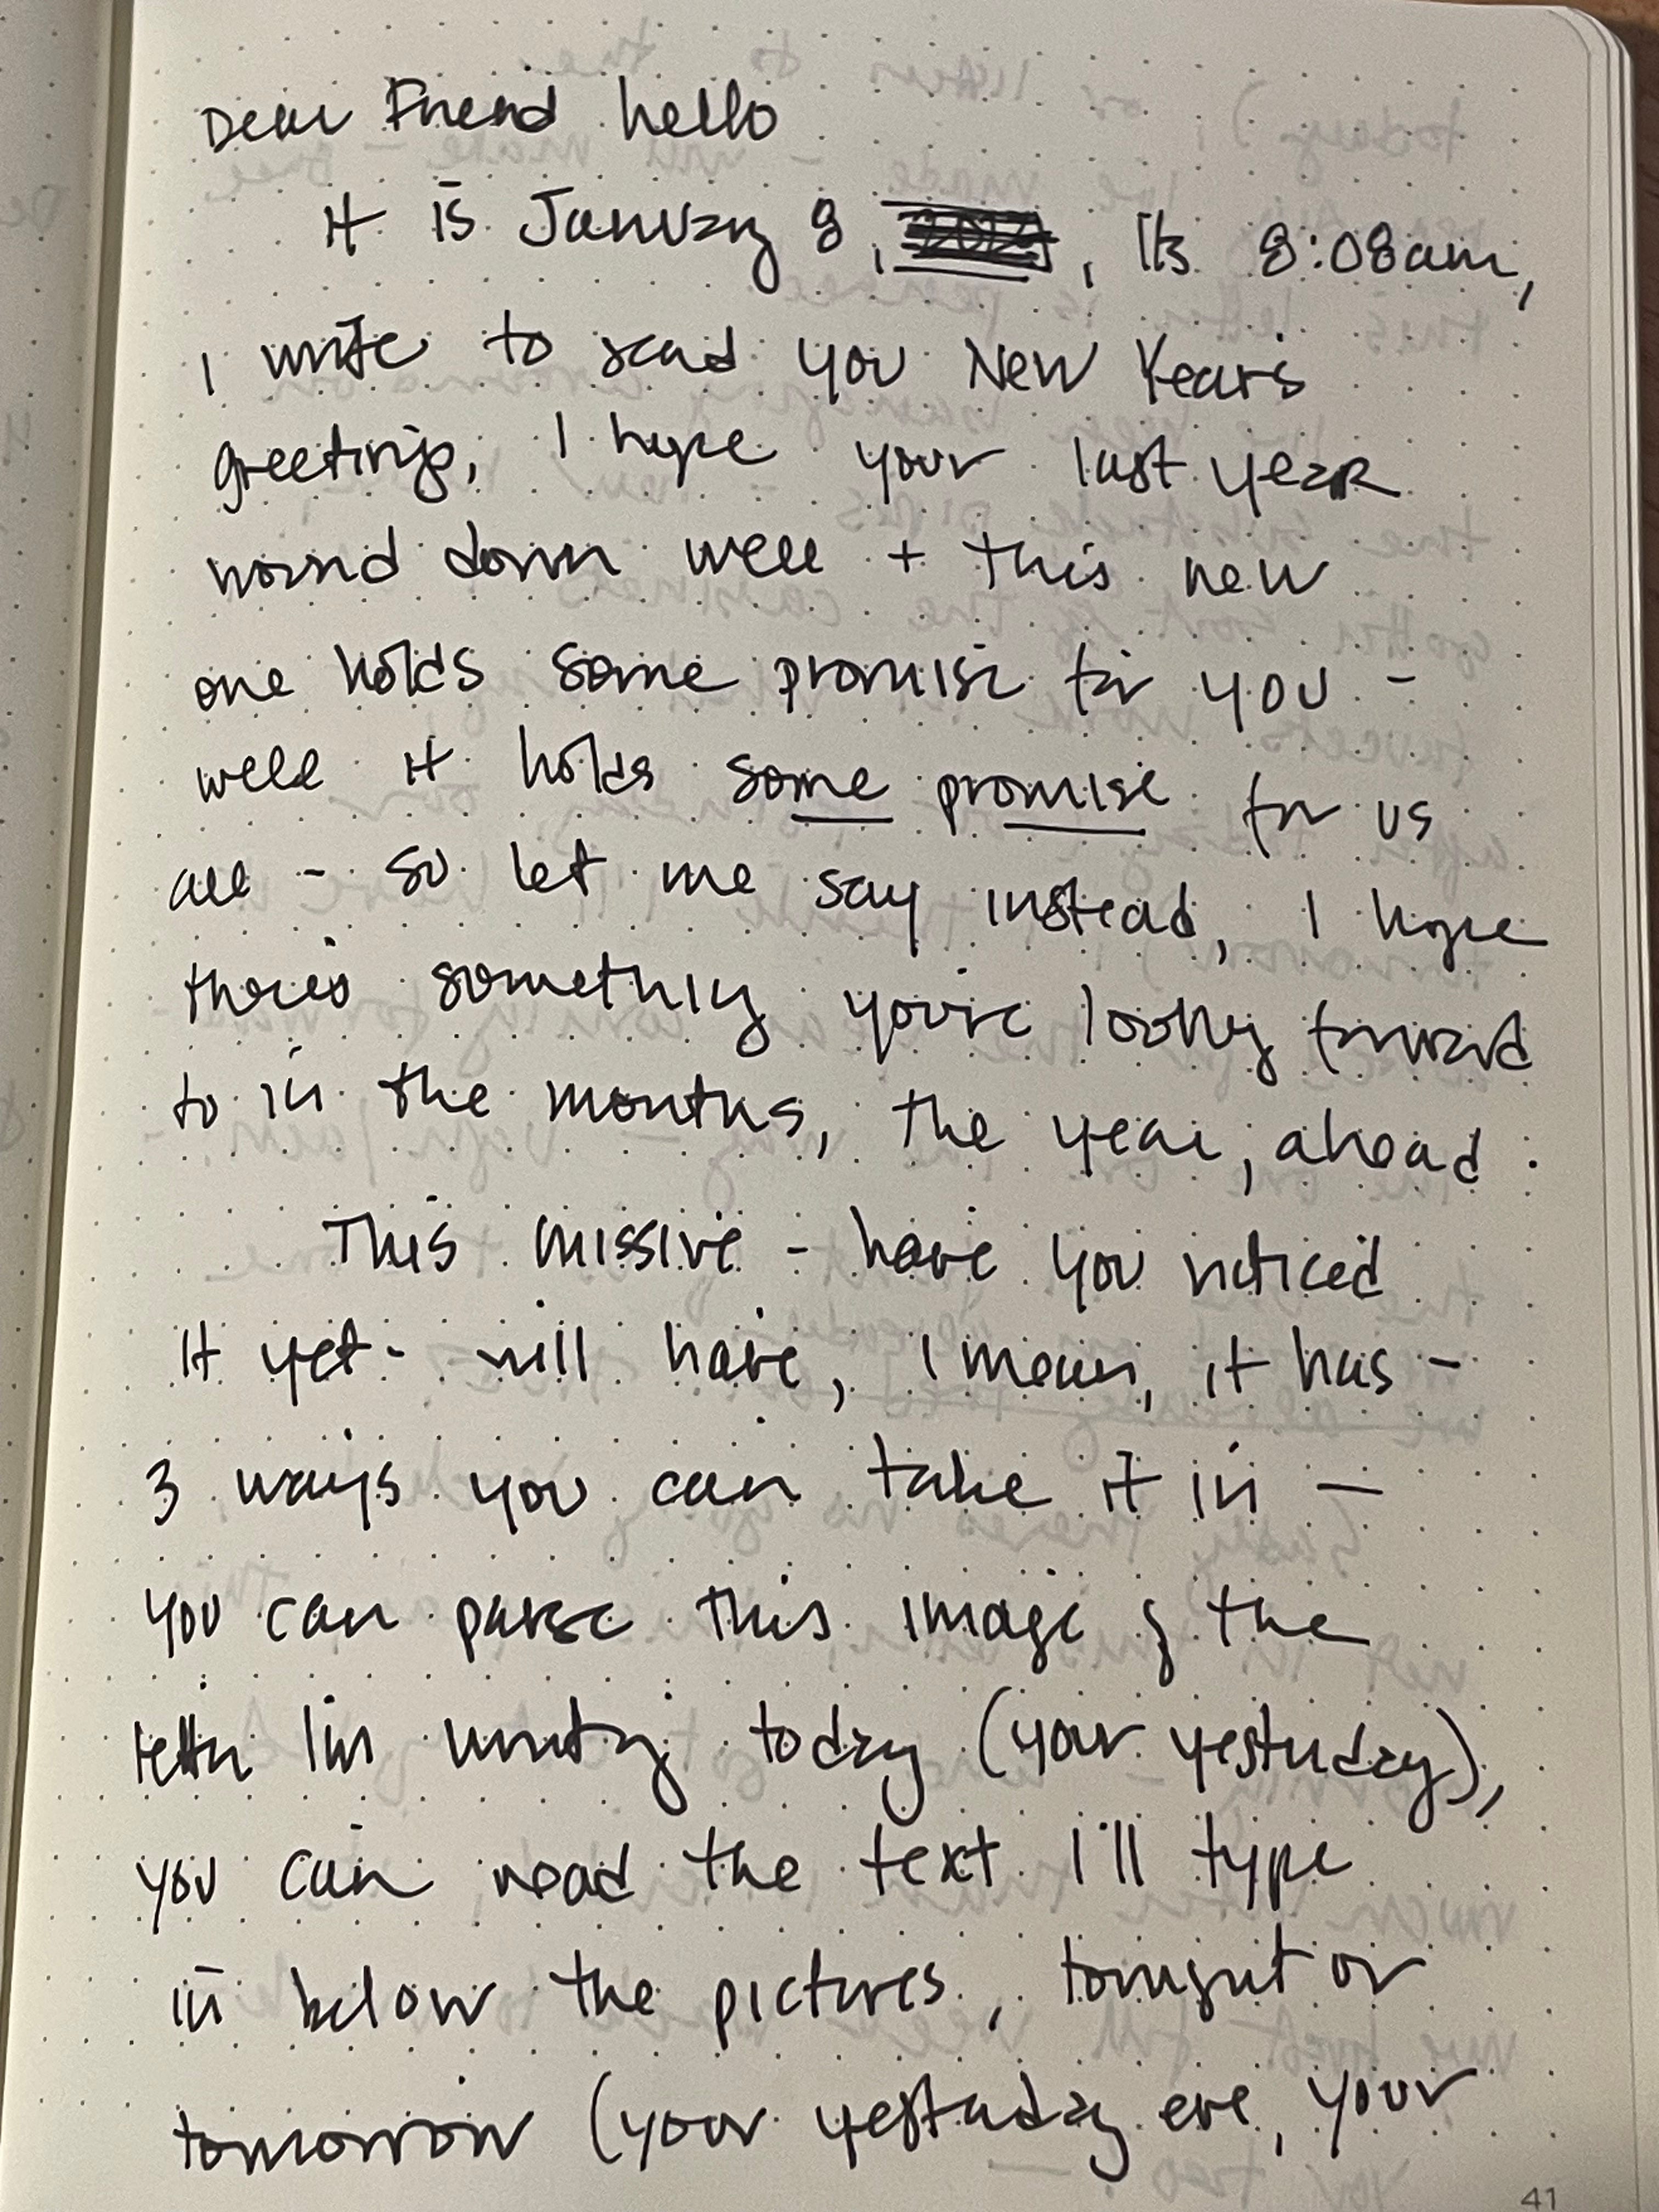 Dear Friend hello
It is January 8, , Its 8:08am,
I write to send you New Years
greetings, I hope your last year
wound down well + this new
one holds some promise for you -
well it holds some promise for us
all - so let me say instead, I hope
there's something you're looking forward
to in the months, the year, ahead.
This missive - have you noticed
it yet - will have, I mean, it has -
3 ways you can take it in —
you can parse this image of the
letter I'm writing today (your yesterday),
you can read the text I'll type
in below the pictures, tonight or
tomorrow (your yesterday eve, your
41